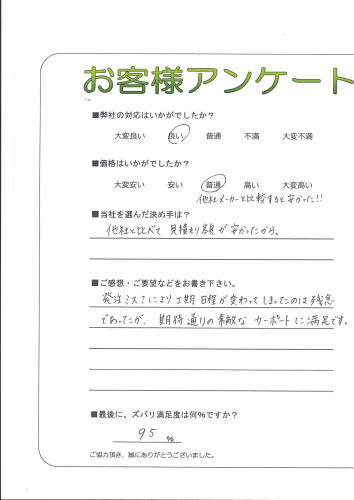 お客様アンケート
■弊社の対応はいかがでしたか？
大変良い 良い 普通 不満 大変不満
■価格はいかがでしたか？
大変安い 安い 普通 高い 大変高い
他社メーカーと比較すると安かった!!
■当社を選んだ決め手は？
他社と比べて 見積もり額が安かったから。
■ご感想・ご要望などをお書き下さい。
発注ミスにより工期日程が変わってしまったのは残念
であったが、期待通りの素敵な カーポートに満足です。
■最後に、ズバリ満足度は何％ですか？
95 ％
ご協力頂き、誠にありがとうございました。